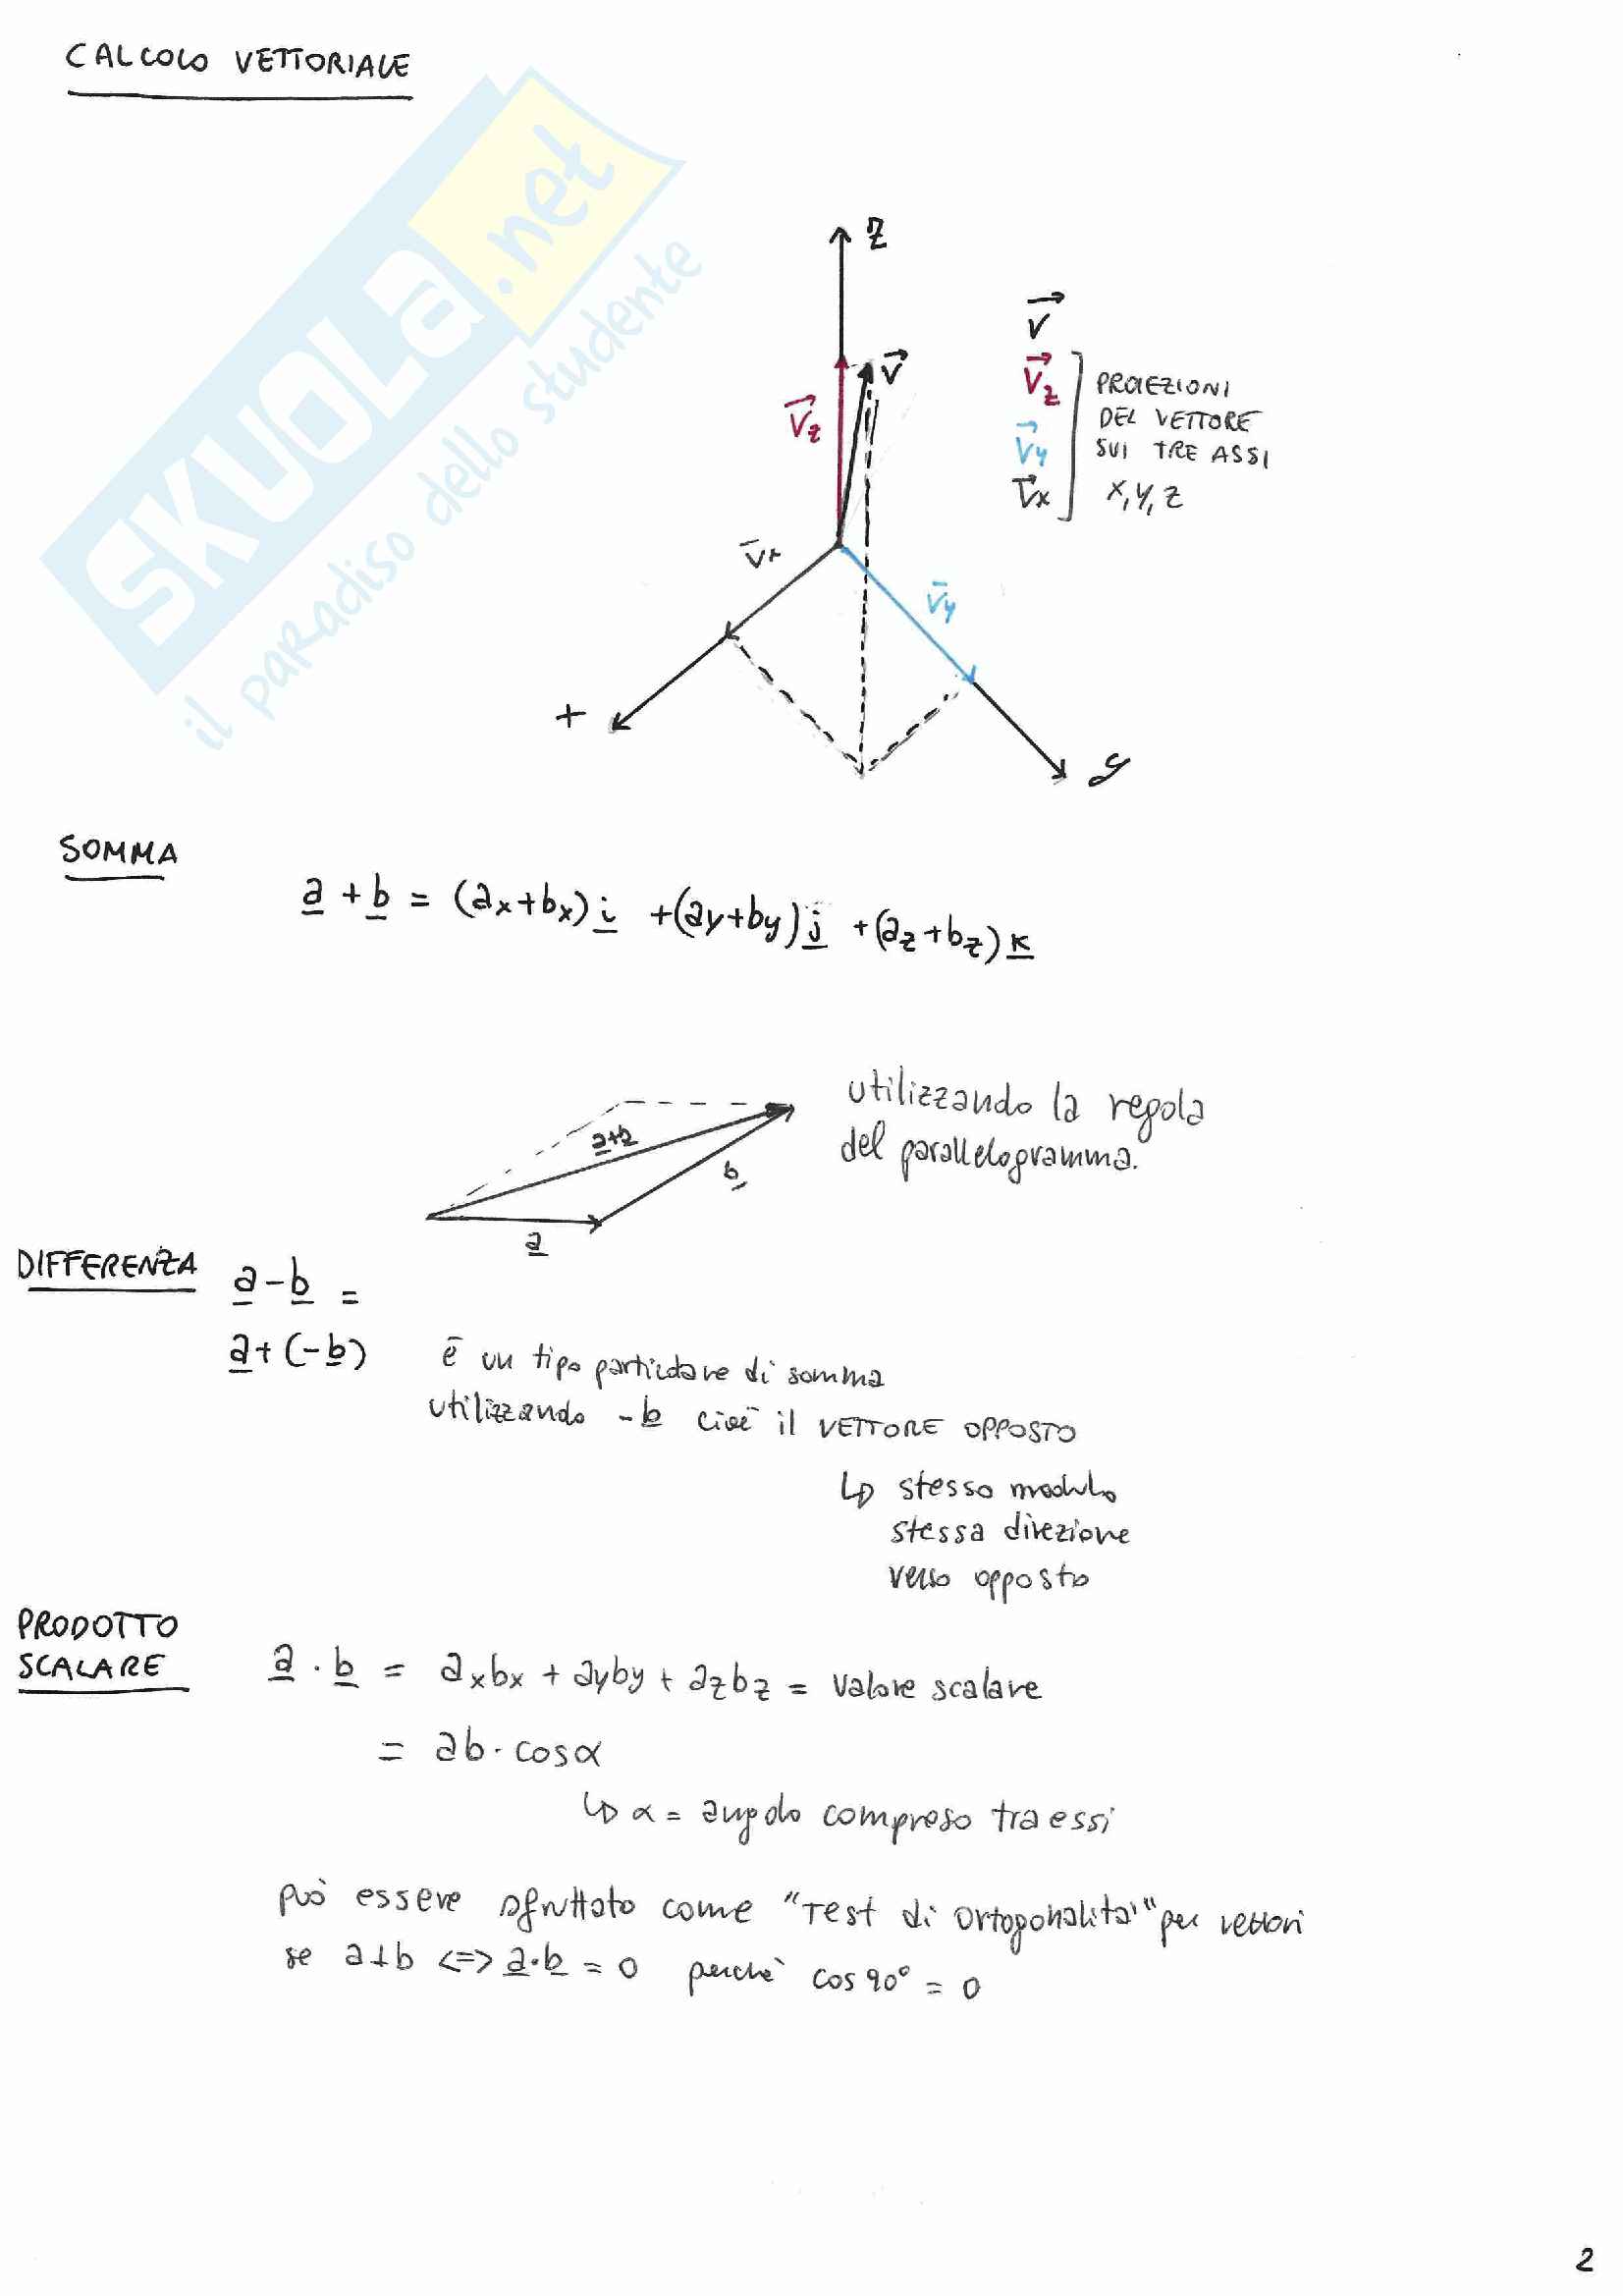 CALCOLO VETTORIALE
SKUOLA.net
il paradiso dello studente
z
v⃗
v⃗z
v⃗
v⃗z
v⃗y
v⃗x
PROIEZIONI
DEL VETTORE
SUI TRE ASSI
x, y, z
v̄x
v̄y
+
y
SOMMA
a + b = (ax+bx) i +(ay+by) j +(az+bz) k
a+b
b
a
utilizzando la regola
del parallelogramma.
DIFFERENZA
a-b =
a+(-b)
è un tipo particolare di somma
utilizzando -b cioè il VETTORE OPPOSTO
↳ stesso modulo
stessa direzione
verso opposto
PRODOTTO
SCALARE
a · b = axbx + ayby + azbz = valore scalare
= ab · cosα
↳ α = angolo compreso tra essi
può essere sfruttato come "Test di ortogonalità" per vettori
se a⊥b <=> a·b = 0 perchè cos 90° = 0
2